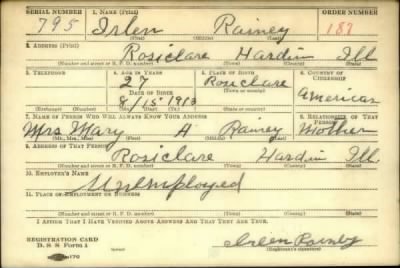 SERIAL NUMBER 1. NAME (Print) ORDER NUMBER
795 Irlen Rainey 187
(First) (Middle) (Last)
2. ADDRESS (Print)
Rosiclare Hardin Ill
(Number and street or R. F. D. number) (Town) (County) (State)
3. TELEPHONE 4. AGE IN YEARS 5. PLACE OF BIRTH 6. COUNTRY OF CITIZENSHIP
27 Rosiclare American
DATE OF BIRTH
8/15 1913
(Mo.) (Day) (Yr.)
7. NAME OF PERSON WHO WILL ALWAYS KNOW YOUR ADDRESS 8. RELATIONSHIP OF THAT PERSON
Mrs Mary A Rainey Mother
(Mr., Mrs., Miss) (First) (Middle) (Last)
9. ADDRESS OF THAT PERSON
Rosiclare Hardin Ill
(Number and street or R. F. D. number) (Town) (County) (State)
10. EMPLOYER'S NAME
Unemployed
11. PLACE OF EMPLOYMENT OR BUSINESS
(Number and street or R. F. D. number) (Town) (County) (State)
I AFFIRM THAT I HAVE VERIFIED ABOVE ANSWERS AND THAT THEY ARE TRUE.
REGISTRATION CARD
D. S. S. Form 1
(Registrant's signature)